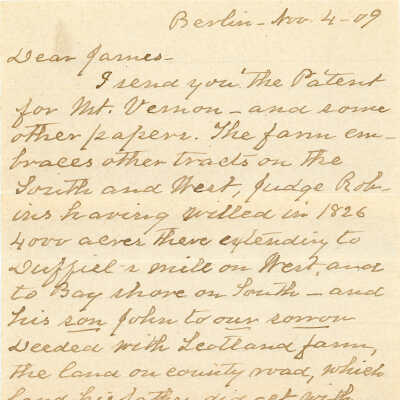 Berlin - Nov. 4 - 09
Dear James -
I send you the Patent
for Mt. Vernon - and some
other papers. The farm em-
braces other tracts on the
South and West, Judge Rob-
ins having willed in 1826
4000 acres there extending to
Duffiel's mill on West, and
to Bay shore on South - and
his son John to our sorrow
Deeded with Scotland farm,
the land on county road, which
land his father did get with